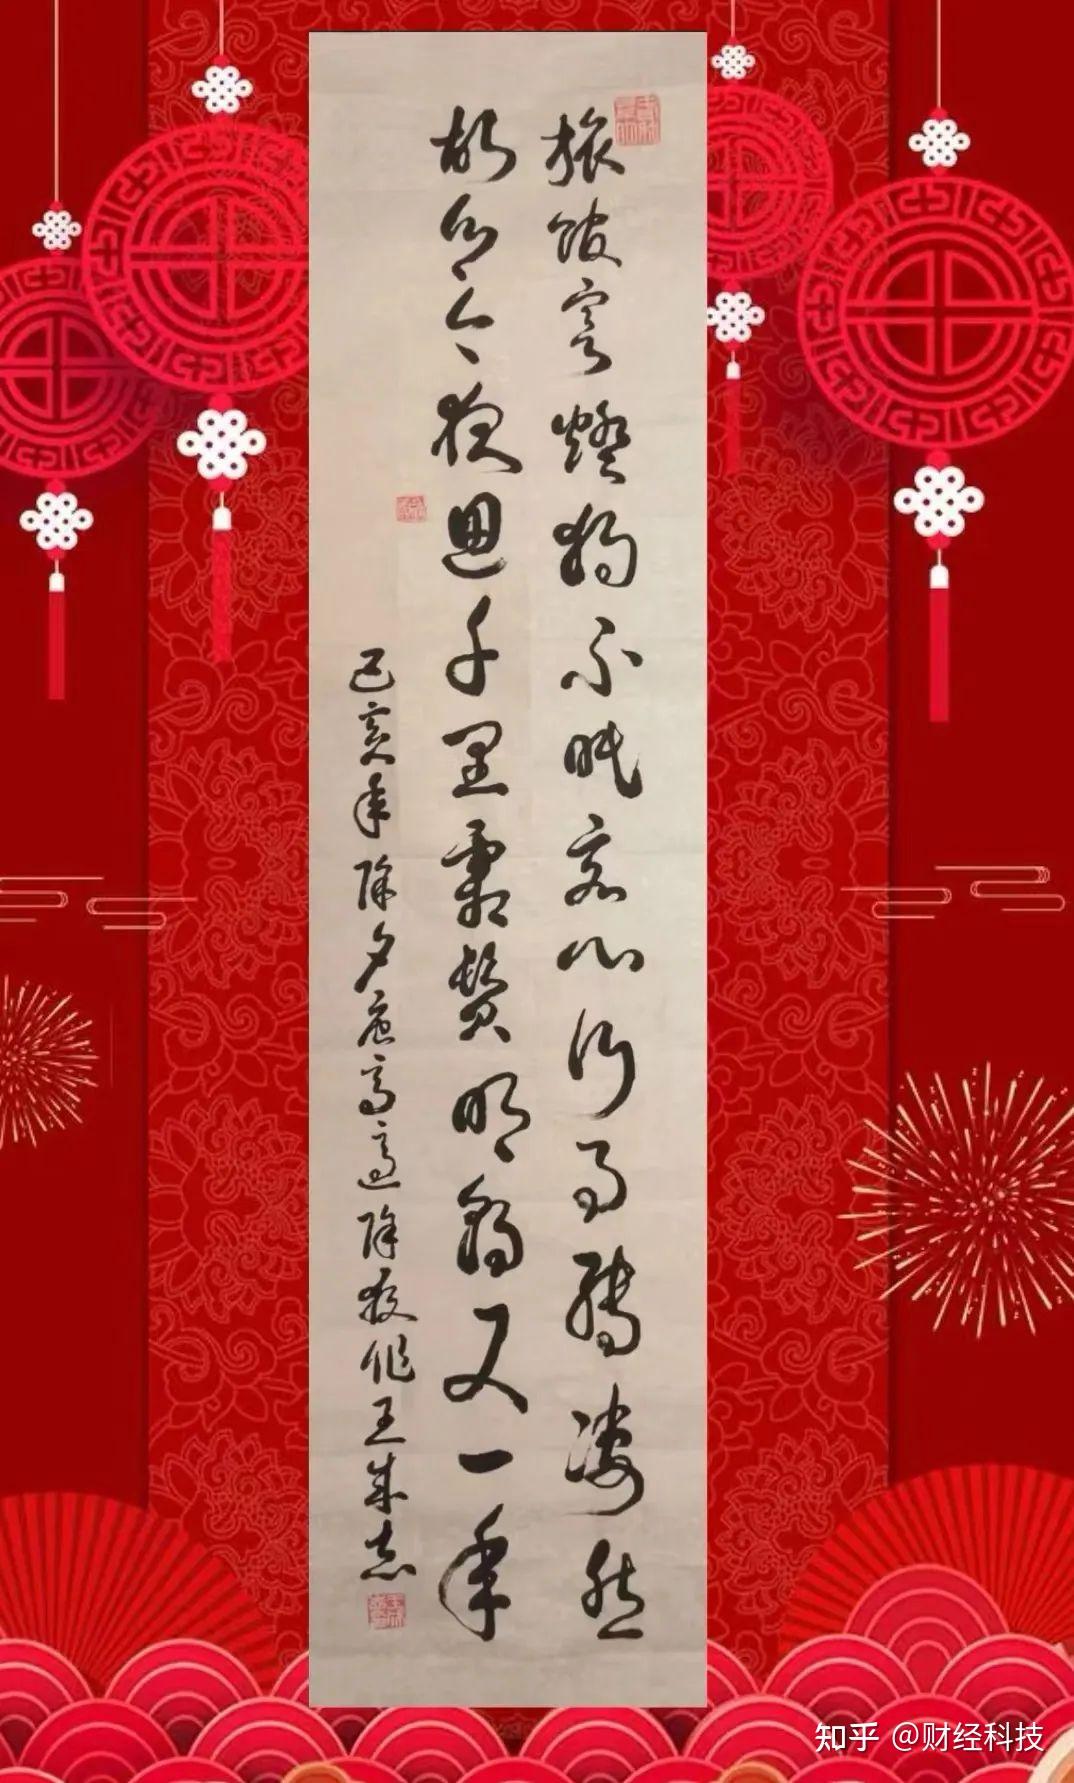 旅館寒燈獨不眠客心何事轉凄然
故鄉今夜思千里霜鬢明朝又一年
己亥年除夕唐高適除夜作王成志
知乎 @财经科技